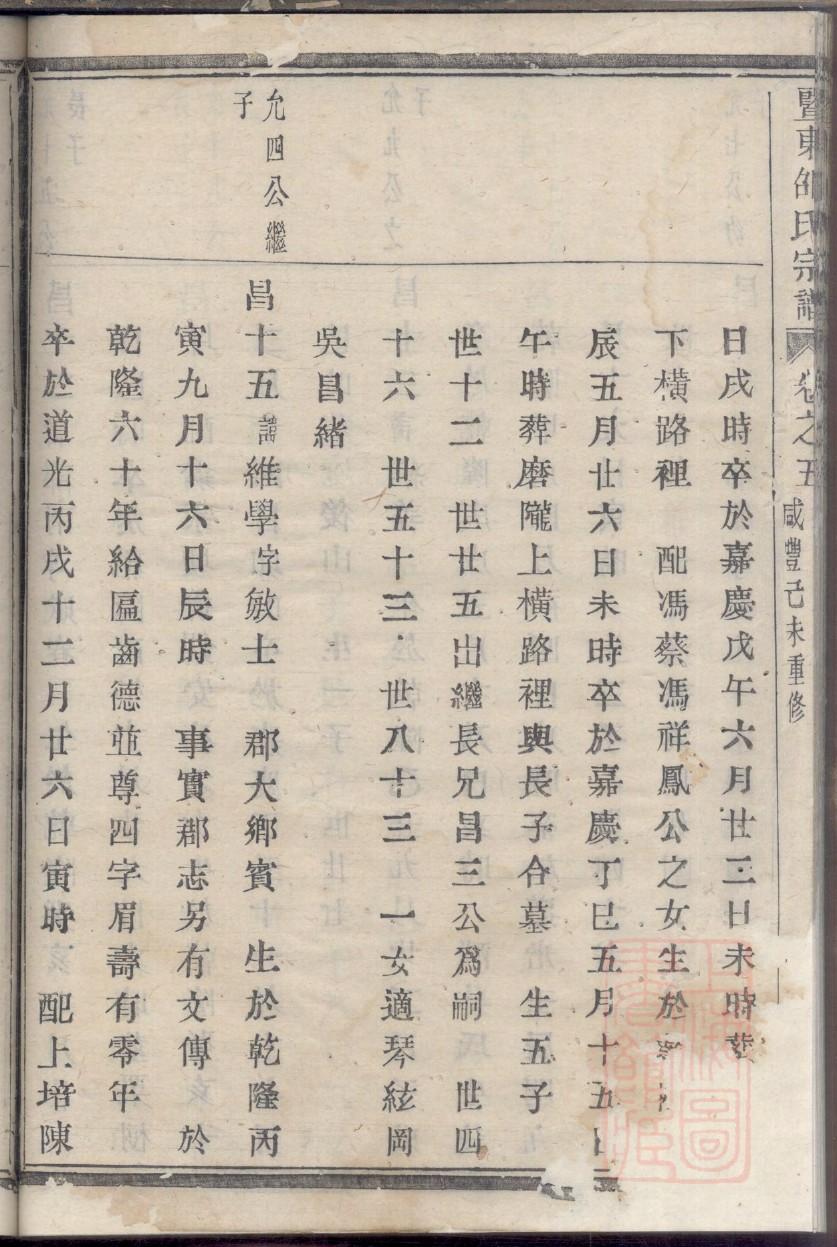 暨東邵氏宗譜 卷之五 咸豐己未重修
日戌時卒於嘉慶戊午六月廿二日未時葬
下橫路裡 配馮蔡馮祥鳳公之女生於
辰五月廿六日未時卒於嘉慶丁巳五月十五日
午時葬磨隴上橫路裡與長子合墓 生五子
世十二 世廿五出繼長兄昌三公爲嗣 世四
十六 世五十三 世八十三 一女適琴絃岡
吳昌緒
允四公繼
子
昌十五諱維學字敏士 郡大鄉賓 生於乾隆丙
寅九月十六日辰時 事實郡志另有文傳 於
乾隆六十年給匾齒德並尊四字眉壽有零年
卒於道光丙戌十二月廿六日寅時 配上培陳